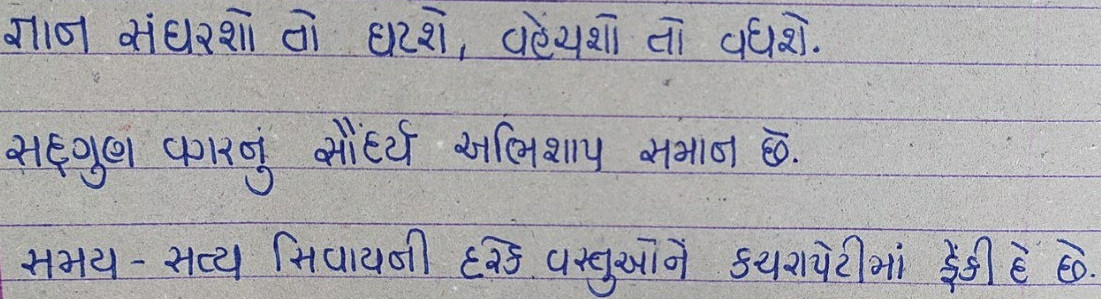 જ્ઞાન સંઘરશો તો ઘટશે, વહેંચશો તો વધશે.
સદ્દગુણ વગરનું સૌંદર્ય અભિશાપ સમાન છે.
સમય - સત્ય સિવાયની દરેક વસ્તુઓને કચરાપેટીમાં ફેંકી દે છે.